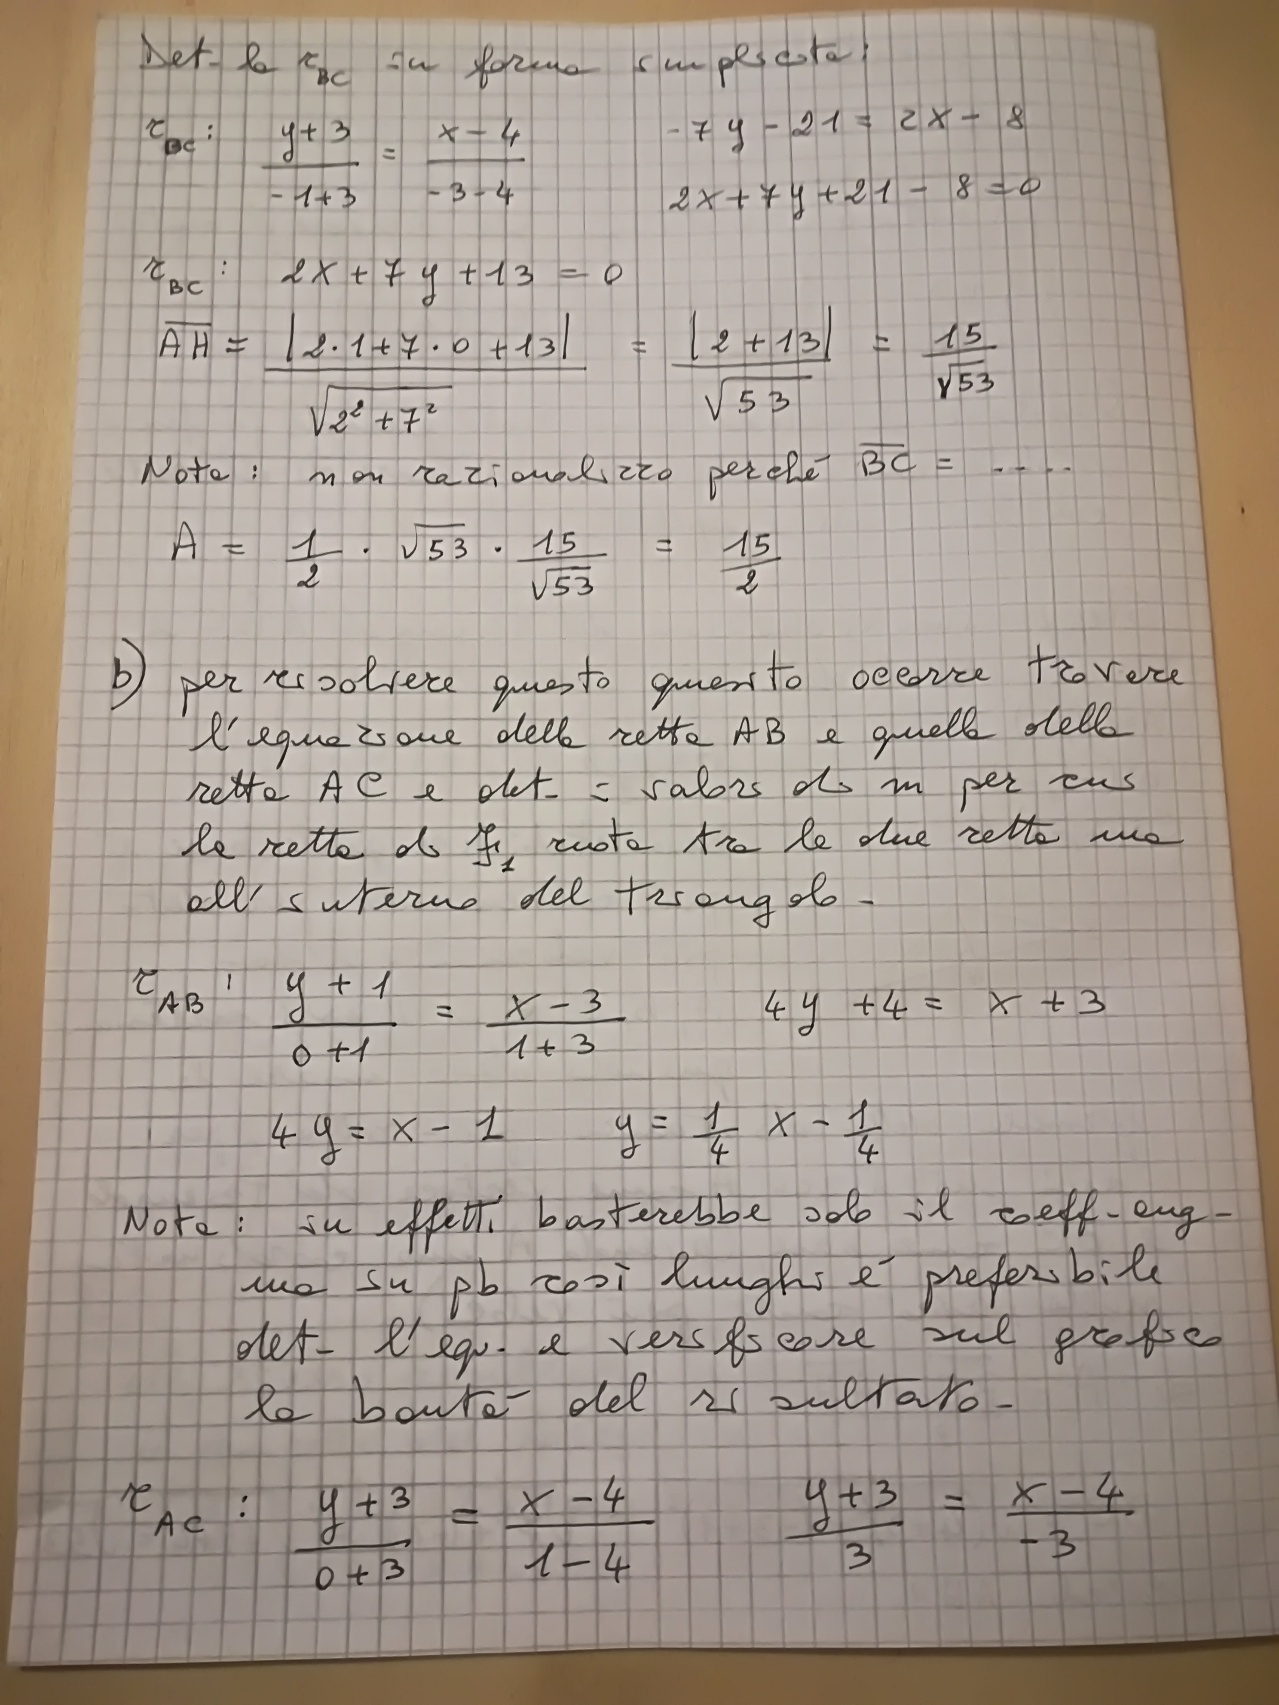 Det. la r_BC in forma implicita:
r_BC: (y+3)/(-1+3) = (x-4)/(-3-4) -7y-21 = 2x-8
2x+7y+21-8=0
r_BC: 2x+7y+13=0
A̅H̅ = |2·1+7·0+13|/√(2²+7²) = |2+13|/√53 = 15/√53
Nota: non razionalizzo perché B̅C̅ = .....
A = 1/2 · √53 · 15/√53 = 15/2
b) per risolvere questo quesito occorre trovare
l'equazione della retta AB e quella della
retta AC e det. i valori di m per cui
la retta di F₁ ruota tra le due rette ma
all'interno del triangolo.
r_AB: (y+1)/(0+1) = (x-3)/(1+3) 4y+4 = x+3
4y = x-1 y = 1/4 x - 1/4
Nota: in effetti basterebbe solo il coeff. ang.
ma in pb così lunghi é preferibile
det. l'equ. e verificare sul grafico
la bontá del risultato.
r_AC: (y+3)/(0+3) = (x-4)/(1-4) (y+3)/3 = (x-4)/-3